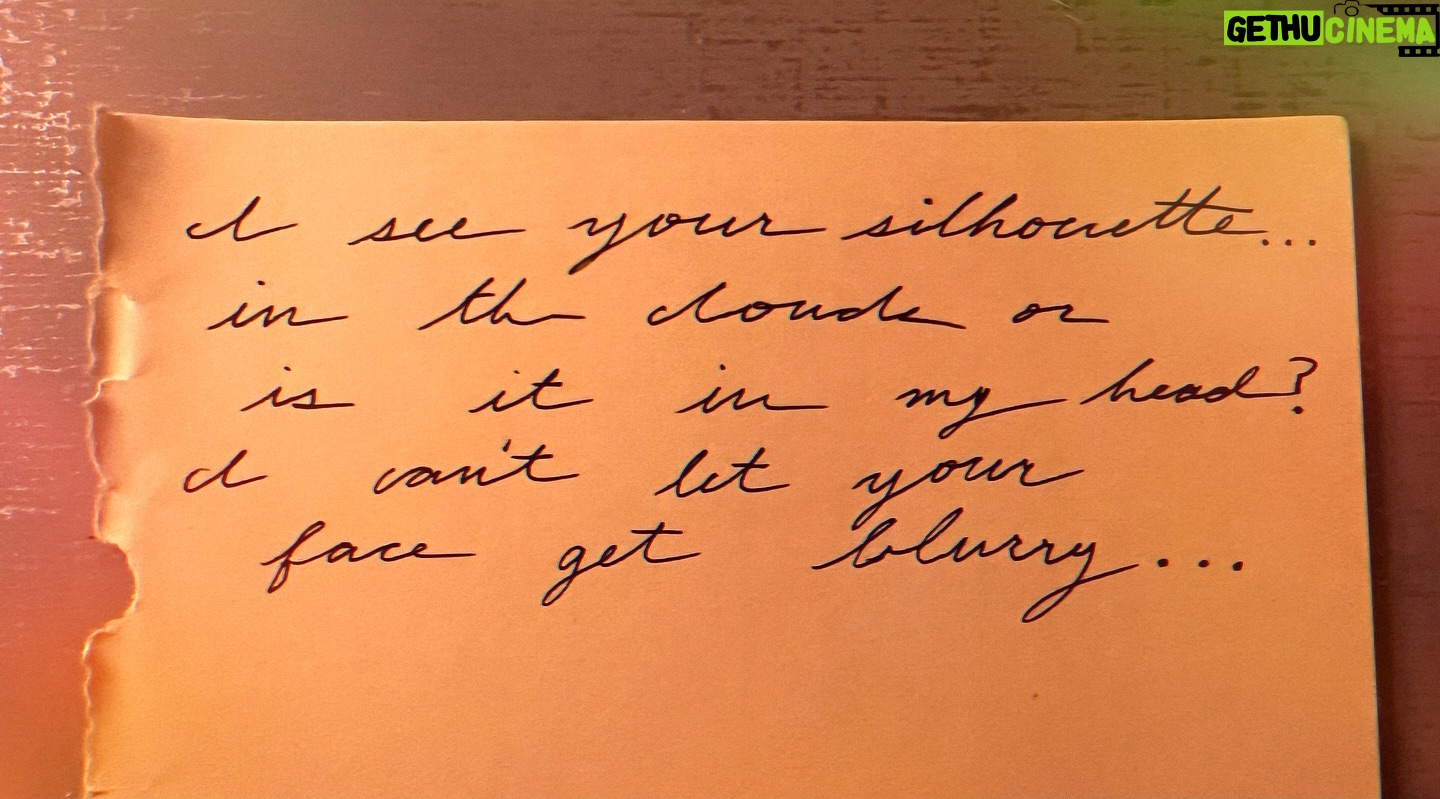 GETHU CINEMA
I see your silhouette...
in the clouds or
is it in my head?
I can't let your
face get blurry...